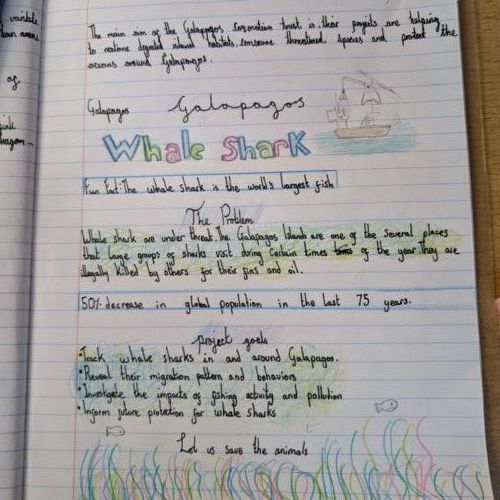 The main aim of the Galapagos Conservation Trust is their projects are helping
to restore degraded island habitats, conserve threatened species and protect the
oceans around Galapagos.
Galapagos Galapagos
Whale Shark
Fun Fact: The whale shark is the world's largest fish
The Problem
Whale shark are under threat. The Galapagos Islands are one of the several places
that large groups of sharks visit during certain times of the year. They are
illegally killed by others for their fins and oil.
50% decrease in global population in the last 75 years.
project goals
• Track whale sharks in and around Galapagos.
• Reveal their migration pattern and behaviors
• Investigate the impacts of fishing activity and pollution
• Inform future protection for whale sharks
Let us save the animals